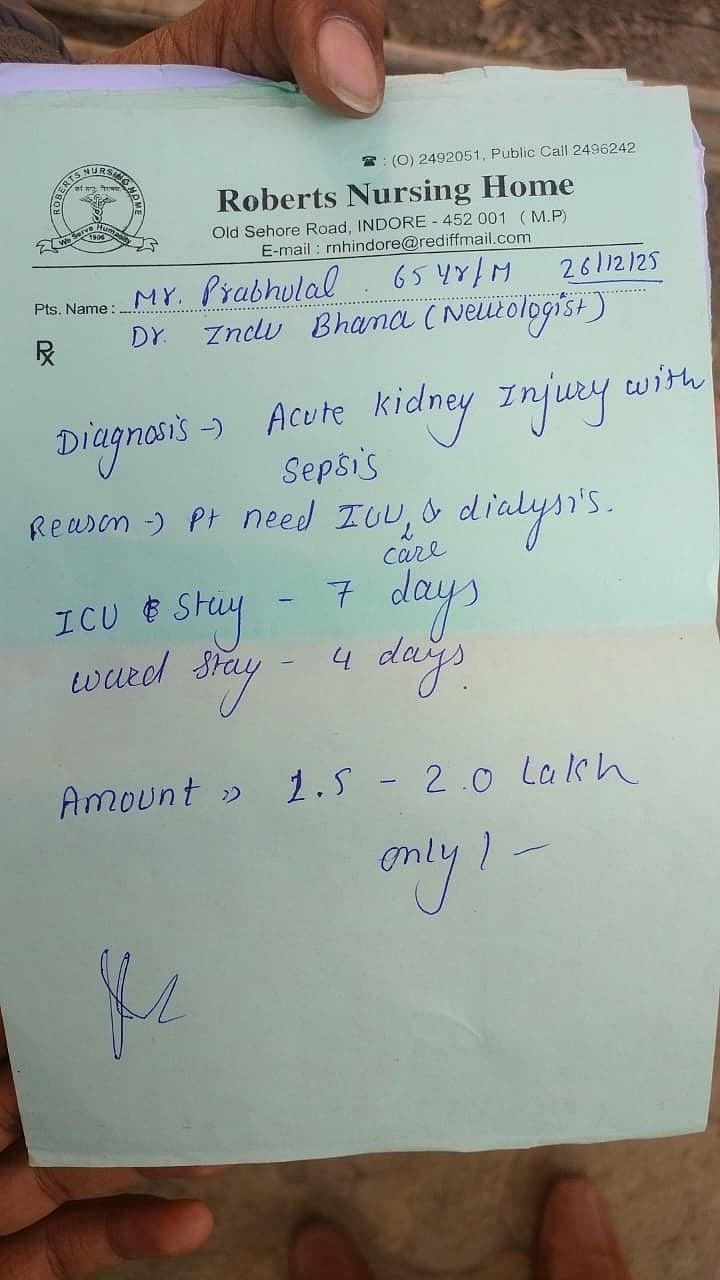 ☎ : (O) 2492051, Public Call 2496242
ROBERTS NURSING HOME
We Serve Humanity
1906
Roberts Nursing Home
Old Sehore Road, INDORE - 452 001 ( M.P)
E-mail : rnhindore@rediffmail.com
Pts. Name : Mr. Prabhulal . 65 yr/M 26/12/25
Rx Dr. Indu Bhana (Neurologist)
Diagnosis → Acute Kidney Injury with
Sepsis
Reason → Pt need ICU & dialysis.
care
ICU Stay - 7 days
ward stay - 4 days.
Amount » 1.5 - 2.0 Lakh
only / -